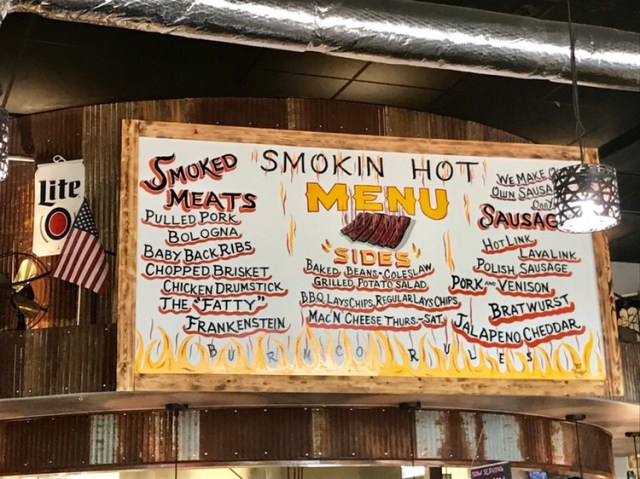 Lite
SMOKED
MEATS
PULLED PORK
BOLOGNA
BABY BACK RIBS
CHOPPED BRISKET
CHICKEN DRUMSTICK
THE "FATTY"
FRANKENSTEIN
"SMOKIN HOT"
MENU
"SIDES"
BAKED BEANS-COLESLAW
GRILLED POTATO SALAD
BBQ LAYS CHIPS, REGULAR LAYS CHIPS
MAC'N CHEESE THURS.-SAT.
WE MAKE O
OWN SAUSA
SAUSAG
HOT LINK
LAVA LINK
POLISH SAUSAGE
PORK AND VENISON
BRATWURST
JALAPENO CHEDDAR
BURNCO RULES
NOW SERVING